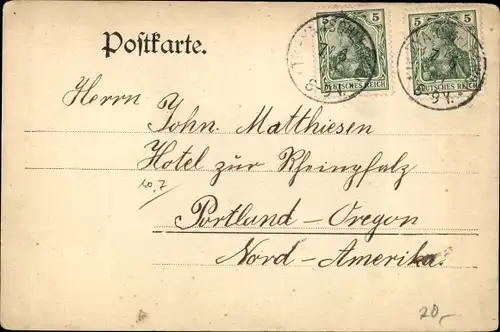 Postkarte.
5
5
8-9V.
9V.
DEUTSCHES REICH
DEUTSCHES REICH
Herrn
John. Matthiesen
Hotel zur Rheinpfalz
10,7
Portland-Oregon
Nord-Amerika.
20,-